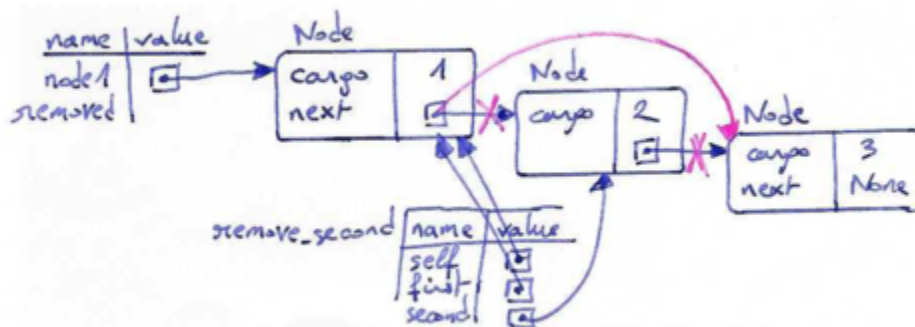 name value
node1
removed
Node
cargo 1
next
Node
cargo 2
Node
cargo 3
next None
remove_second name value
self
first
second